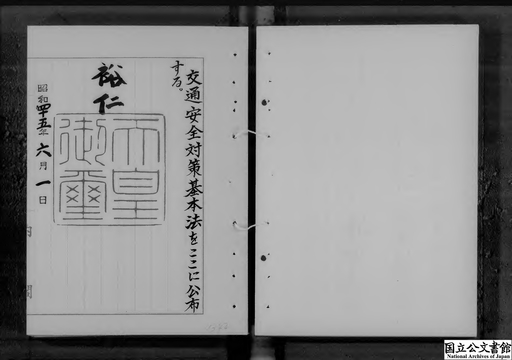 交通安全対策基本法をここに公布
する。
裕仁
天皇
御璽
昭和四十五年六月一日
国立公文書館
National Archives of Japan